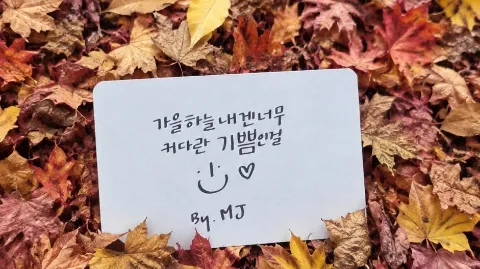 가을하늘 내겐 너무
커다란 기쁨인걸
By. MJ